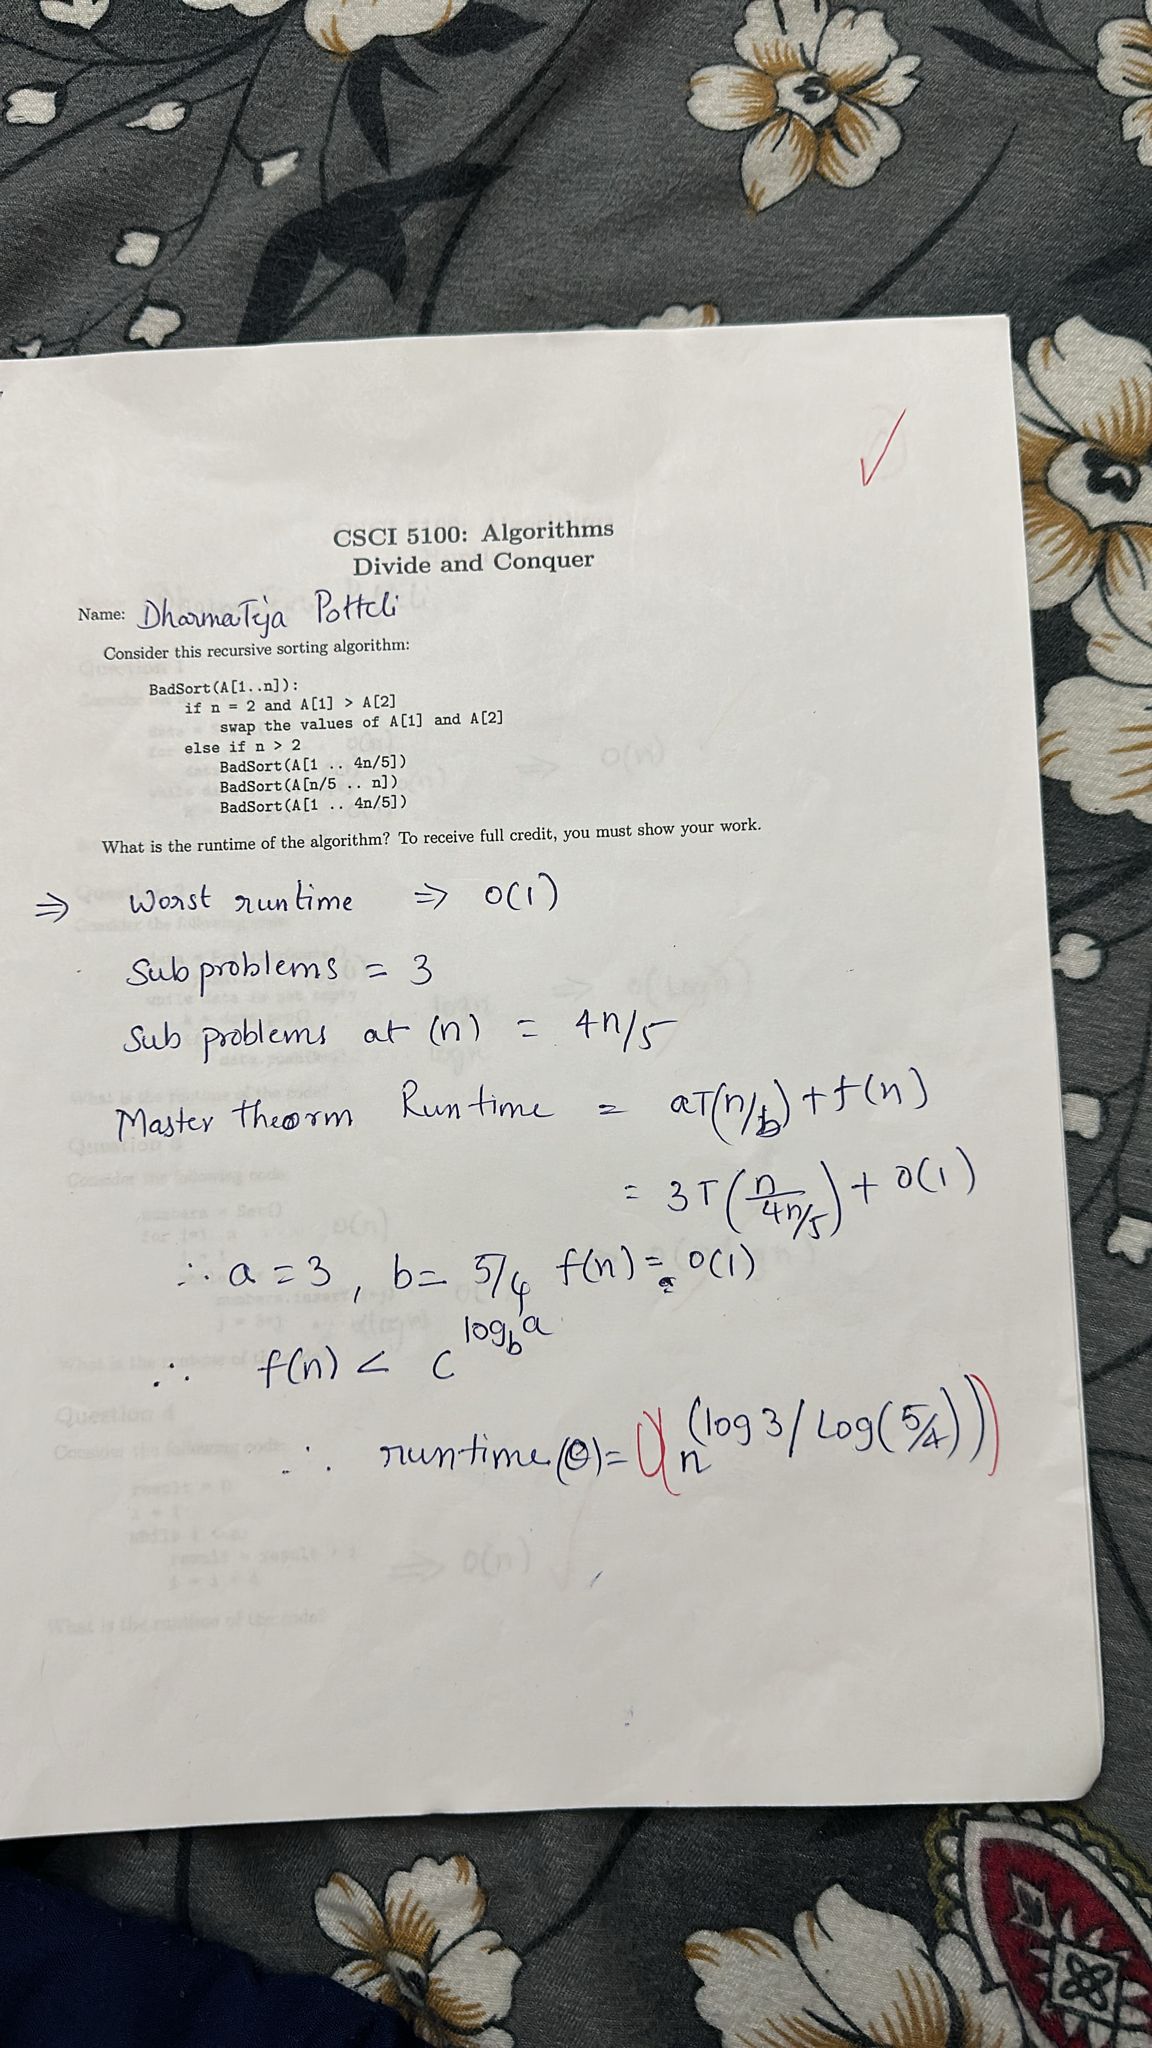 CSCI 5100: Algorithms
Divide and Conquer
Name: DharmaTeja Potteli
Consider this recursive sorting algorithm:
BadSort(A[1..n]):
if n = 2 and A[1] > A[2]
swap the values of A[1] and A[2]
else if n > 2
BadSort(A[1 .. 4n/5])
BadSort(A[n/5 .. n])
BadSort(A[1 .. 4n/5])
What is the runtime of the algorithm? To receive full credit, you must show your work.
⇒ Worst runtime ⇒ O(1)
Sub problems = 3
Sub problems at (n) = 4n/5
Master theorm Runtime = aT(n/b) + f(n)
= 3T(n/4n/5) + O(1)
∴ a = 3, b = 5/4 f(n) = O(1)
∴ f(n) < c^log_b a
∴ runtime (Θ) = O(n^(log 3 / Log(5/4)))